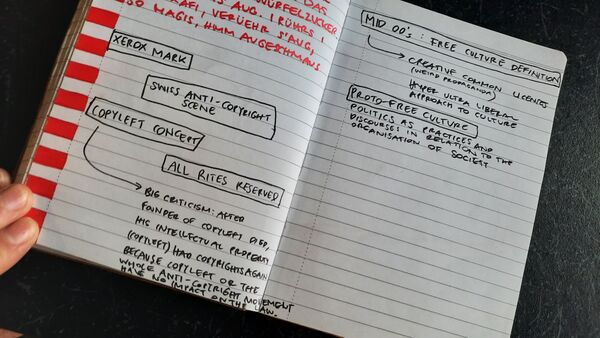 DAS
WÜRFELZUCKER
AUG. I RÜHRS I
SO MAGIS, HMM AUGESCHMAUS
XEROX MARK
SWISS ANTI-COPYRIGHT
SCENE
COPYLEFT CONCEPT
ALL RITES RESERVED
BIG CRITICISM: AFTER
FOUNDER OF COPYLEFT DIED,
HIS INTELLECTUAL PROPERTY
(COPYLEFT) HAD COPYRIGHTS AGAIN
BECAUSE COPYLEFT OR THE
WHOLE ANTI-COPYRIGHT MOVEMENT
HAVE NO IMPACT ON THE LAW.
MID 00's: FREE CULTURE DEFINITION
CREATIVE COMMON LICENSES
(WEIRD PROPAGANDA)
HYPER ULTRA LIBERAL
APPROACH TO CULTURE
PROTO-FREE CULTURE
POLITICS AS PRACTICES AND
DISCOURSES IN RELATION TO THE
ORGANISATION OF SOCIETY